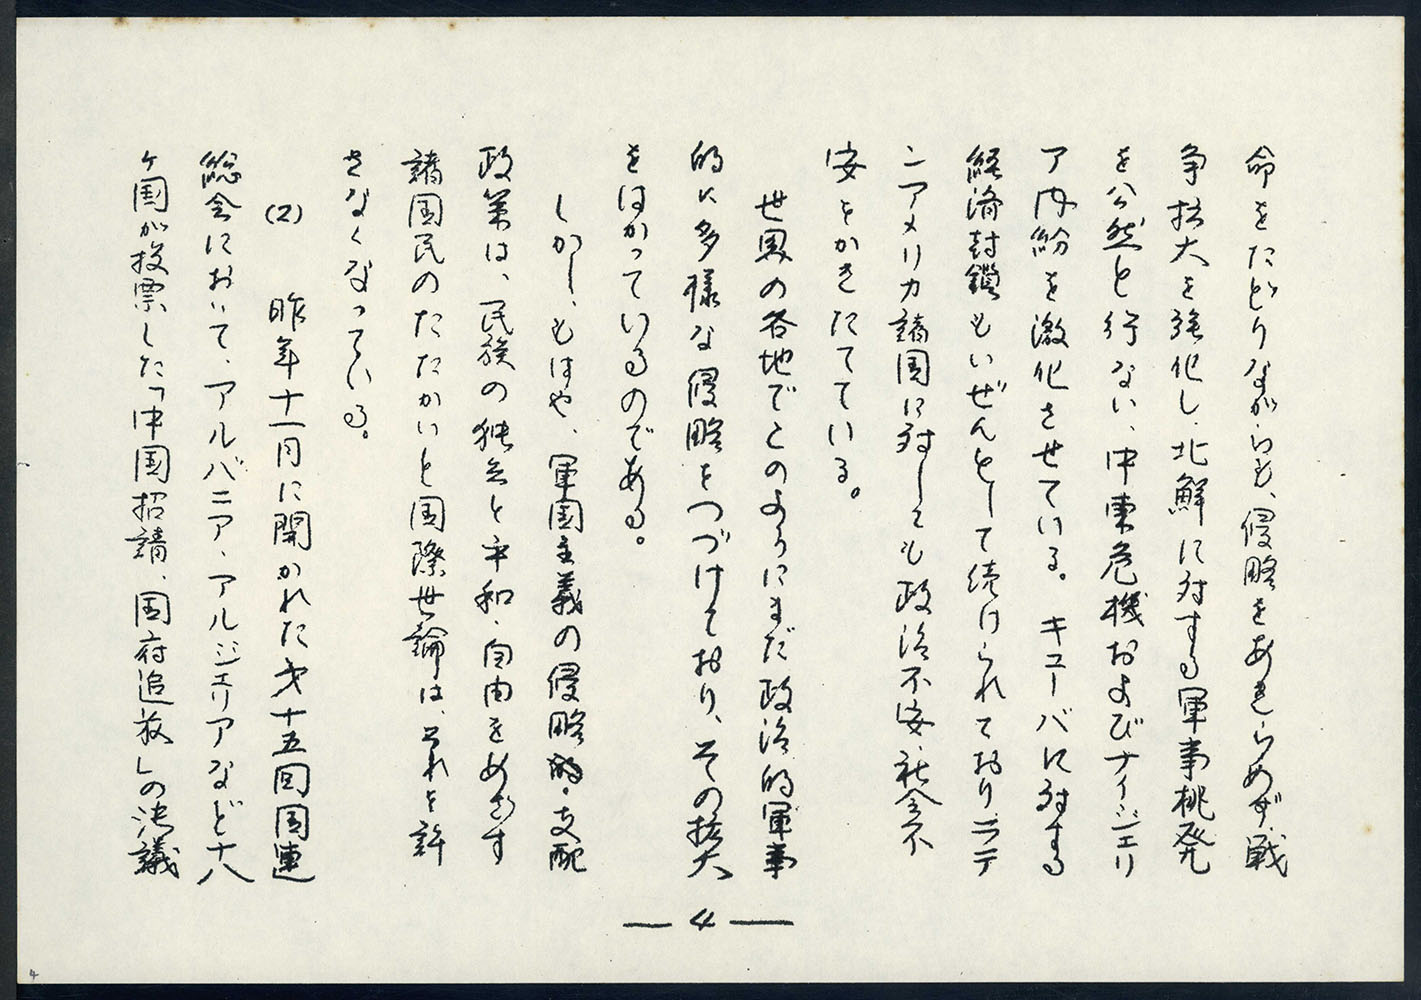 命をたどりながらも、侵略をあきらめず、戦
争拡大を強化し、北鮮に対する軍事挑発
を公然と行ない、中東危機およびナイジェリ
ア内紛を激化させている。キューバに対する
経済封鎖もいぜんとして続けられており、ラテ
ンアメリカ諸国に対しても政治不安、社会不
安をかきたてている。
世界の各地でこのようにまだ政治的軍事
的に多様な侵略をつづけており、その拡大
をはかっているのである。
しかし、もはや、軍国主義の侵略・支配
政策は、民族の独立と平和、自由をめざす
諸国民のたたかいと国際世論は、それを許
さなくなっている。
(2) 昨年十一月に開かれた才十五回国連
総会において、アルバニア、アルジェリアなど十八
ヶ国が投票した「中国招請、国府追放」の決議
— 4 —
4